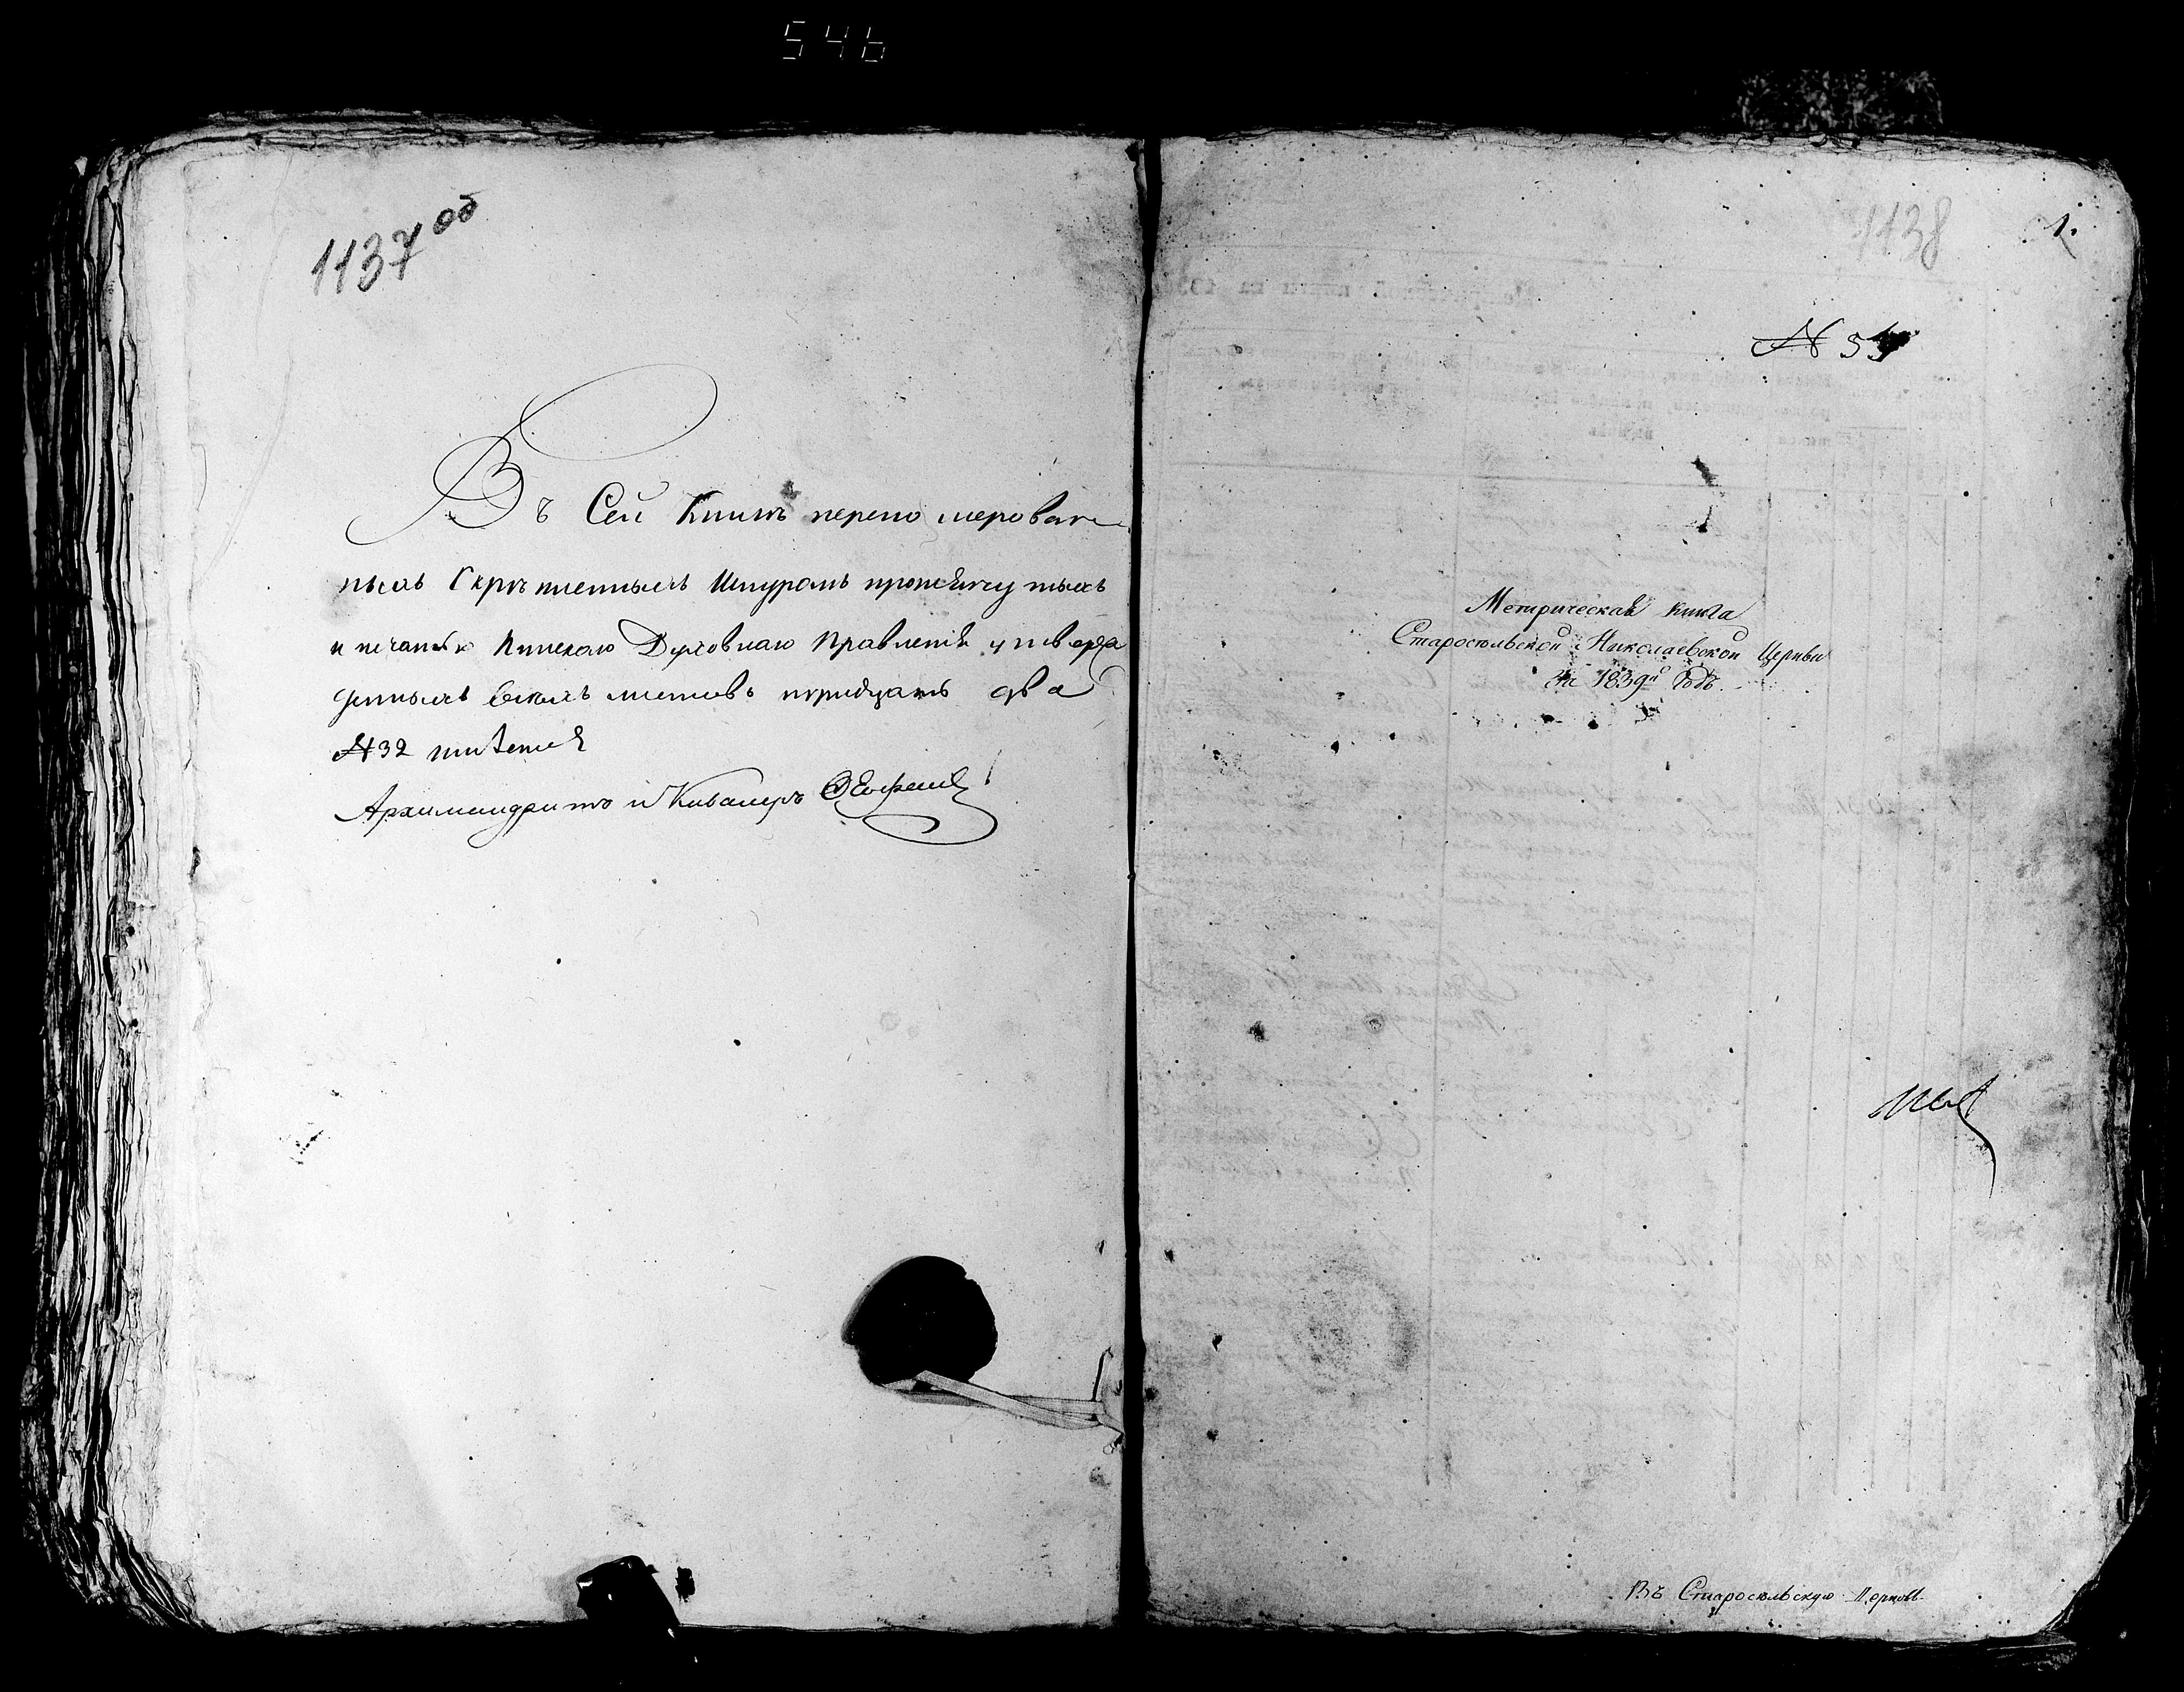 546
1137 об
Въ Сей Книгѣ перено мерован
ныхъ Скрѣпленныхъ Шнуромъ протянутыхъ
и печатью Пинскаго Духовнаго Правленія утверж
денныхъ всѣхъ листовъ тридцать два
№ 32 листа
Архимандритъ и Кавалеръ
1138
1.
№
Метрическая книга
Старосельской Николаевской Церкви
на 1839й Годъ.
Въ Старосельскую Церковь